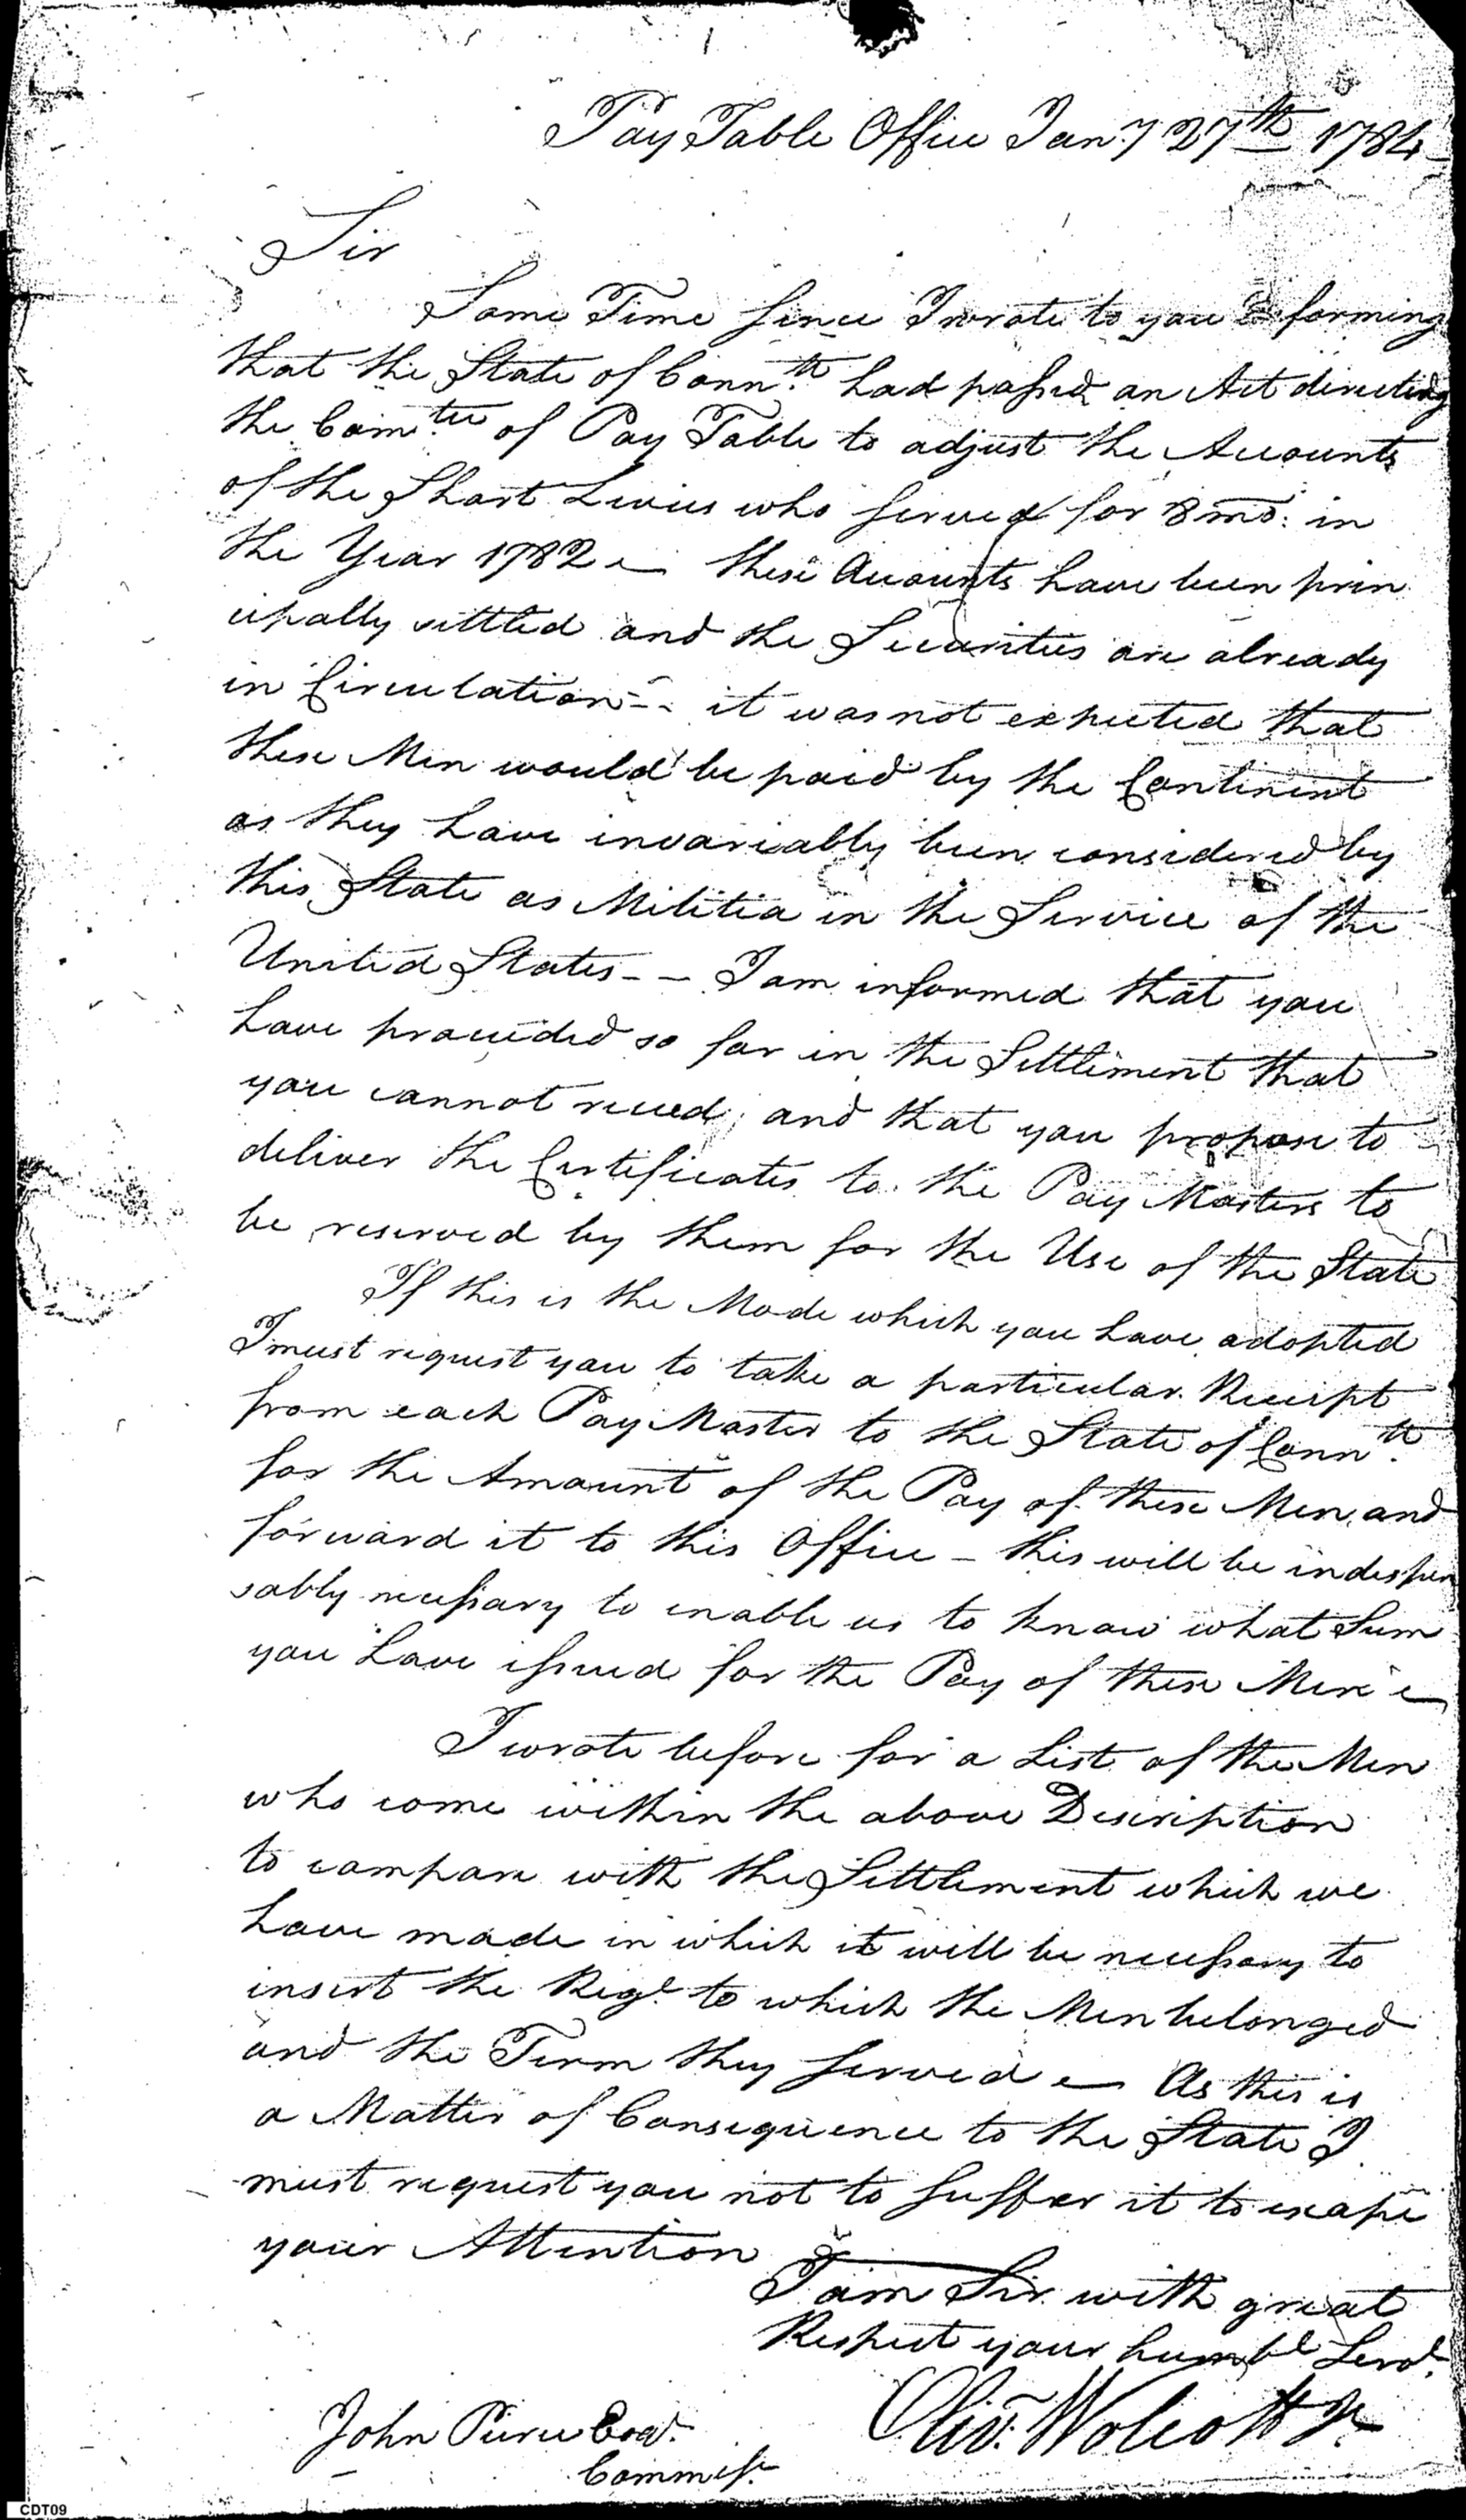 Pay Table Office Jan:y 27th 1784
Sir
Some Time since I wrote to you informing
that the State of Conn:tt had passed an Act directing
the Com:tee of Pay Table to adjust the Accounts
of the Short Levies who served for 8 mo: in
the Year 1782 — these Accounts have been prin
cipally settled and the Securities are already
in Circulation – it was not expected that
these Men would be paid by the Continent
as they have invariably been considered by
this State as Militia in the Service of the
United States – – I am informed that you
have proceeded so far in the Settlement that
you cannot reced; and that you propose to
deliver the Certificates to the Pay Masters to
be reserved by them for the Use of the State
If this is the Mode which you have adopted
I must request you to take a particular Receipt
from each Pay Master to the State of Conn:tt
for the Amount of the Pay of these Men, and
forward it to this Office – this will be indispen
sably necessary to enable us to know what Sum
you have issued for the Pay of these Men —
I wrote before for a List of the Men
who come within the above Description
to compare with the Settlement which we
have made in which it will be necessary to
insert the Reg:t to which the Men belonged
and the Term they served — As this is
a Matter of Consequence to the State I
must request you not to suffer it to escape
your Attention
I am Sir with great
Respect your humbl Servt.
Oliv: Wolcott Jr.
John Pierce Esqr.
Commissr.
CDT09